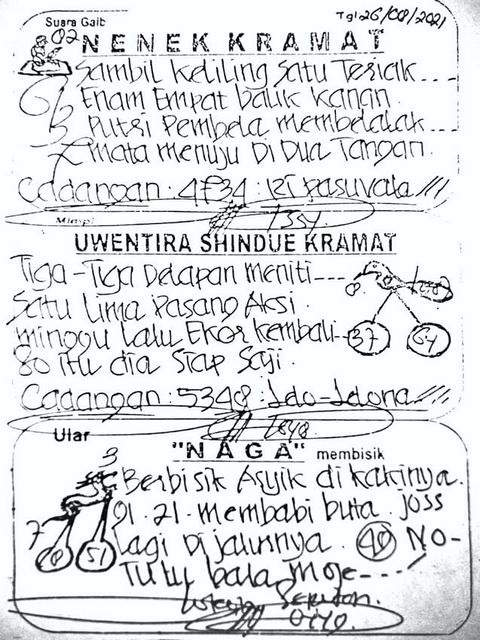 Suara Gaib
Tgl 26/08/2021
02
NENEK KRAMAT
Sambil Keliling Satu Teriak---
Enam Empat balik kanan
Putri Pembela membelalak---
mata menuju Di Dua Tangan.
Cadangan: 4834:
Mimpi
UWENTIRA SHINDUE KRAMAT
Tiga-Tiga Delapan meniti---
Satu Lima Pasang Aksi
minggu lalu Ekor kembali-
37 64
80 itu dia Siap Saji.
Cadangan: 5348: Jelo-Jelona///
Ular
"NAGA" membisik
3
Berbisik Asyik di kakinya.
01-21-membabi buta joss
7
51
lagi Di jalurnya. 40 NO-
Tutu bala moje---